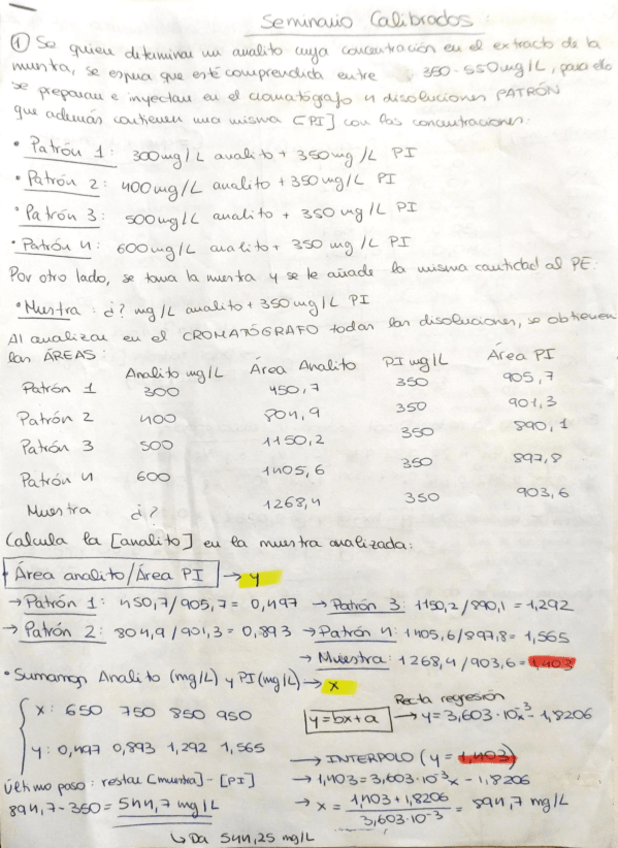 Seminario Calibrados:
① Se quiere determinar un analito cuya concentración en el extracto de la
muestra, se espera que esté comprendida entre 350-550mg/L, para ello
se preparan e inyectan en el cromatógrafo 4 disoluciones PATRÓN
que además contienen una misma [PI] con las concentraciones:
• Patrón 1: 300mg/L analito + 350mg/L PI
• Patrón 2: 400mg/L analito + 350mg/L PI
• Patrón 3: 500mg/L analito + 350 mg/L PI
• Patrón 4: 600mg/L analito + 350 mg/L PI
Por otro lado, se toma la muestra y se le añade la misma cantidad al PE:
• Muestra: ¿? mg/L analito + 350mg/L PI
Al analizar en el CROMATÓGRAFO todas las disoluciones, se obtienen
las ÁREAS:
Analito mg/L Área Analito PI mg/L Área PI
Patrón 1 300 450,7 350 905,7
Patrón 2 400 804,9 350 901,3
Patrón 3 500 1150,2 350 890,1
Patrón 4 600 1405,6 350 897,8
Muestra ¿? 1268,4 350 903,6
Calcula la [analito] en la muestra analizada:
• Área analito/Área PI → y
→ Patrón 1: 450,7/905,7 = 0,497 → Patrón 3: 1150,2/890,1 = 1,292
→ Patrón 2: 804,9/901,3 = 0,893 → Patrón 4: 1405,6/897,8 = 1,565
→ Muestra: 1268,4/903,6 = 1,403
• Sumamos Analito (mg/L) y PI (mg/L) → x
Recta regresión
x: 650 750 850 950 y=bx+a → y = 3,603·10⁻³x - 1,8206
y: 0,497 0,893 1,292 1,565
→ INTERPOLO (y = 1,403)
Último paso: restar [muestra] - [PI] → 1,403 = 3,603·10⁻³x - 1,8206
894,7-350 = 544,7 mg/L → x = 1,403 + 1,8206 / 3,603·10⁻³ = 894,7 mg/L
↳ Da 544,25 mg/L